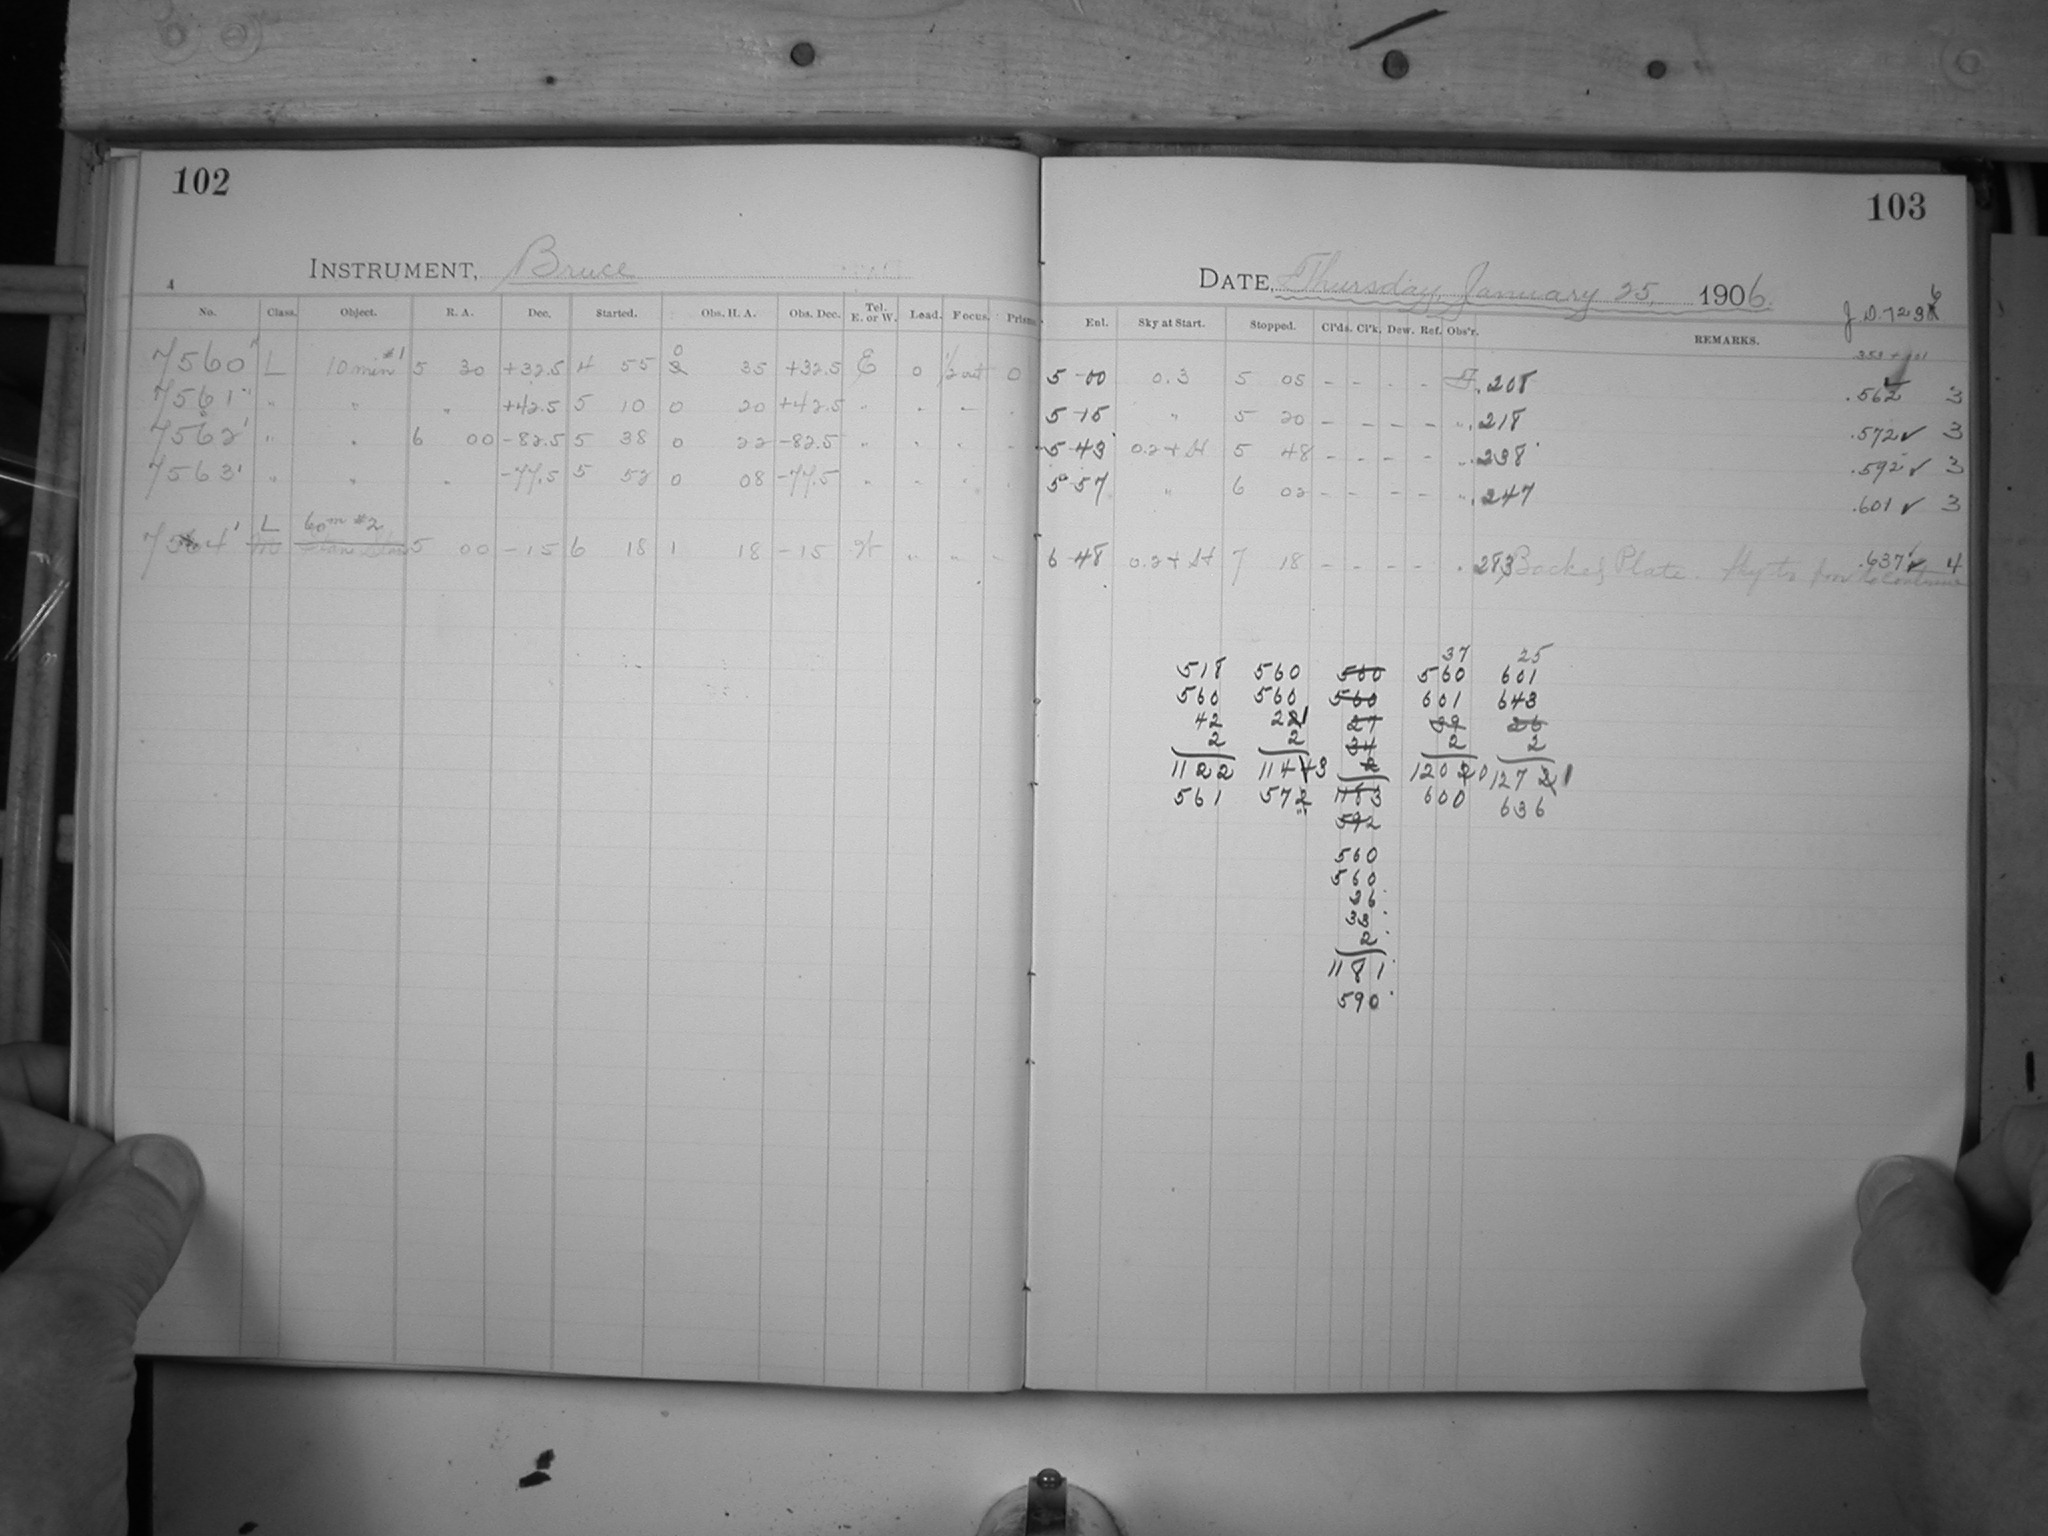 102
INSTRUMENT, Bruce
No. Class. Object. R. A. Dec. Started. Obs. H. A. Obs. Dec. Tel. E. or W. Load. Focus. Prism.
7560 L 10 min #1 5 30 +32.5 4 55 0 35 +32.5 E 0 1/2 out 0
7561 " " " +42.5 5 10 0 20 +42.5 " " - "
7562 " " 6 00 -82.5 5 38 0 22 -82.5 " " " -
7563 " " " -77.5 5 52 0 08 -77.5 " " " "
L 60m #2
7564 5 00 -15 6 18 1 18 -15 W " " -
103
DATE, Thursday, January 25, 1906.
J.D. 7236
Ent. Sky at Start. Stopped. Cl'ds. Cl'k. Dew. Ref. Obs'r. REMARKS.
5-00 0.3 5 05 - - - - .208 .562 3
5-15 " 5 20 - - - - " .218 .572 ✓ 3
5-43 0.2 + H 5 48 - - - - " .238 .592 ✓ 3
5-57 " 6 02 - - - - " .247 .601 ✓ 3
6-48 0.2 + H 7 18 - - - - .283 Backed Plate. .637 ✓ 4
37 25
518 560 560 560 601
560 560 560 601 643
42 221 27 39 26
2 2 34 2 2
1122 1143 2 1200 1271
561 572 1183 600 636
592
560
560
26
33
2
1181
590